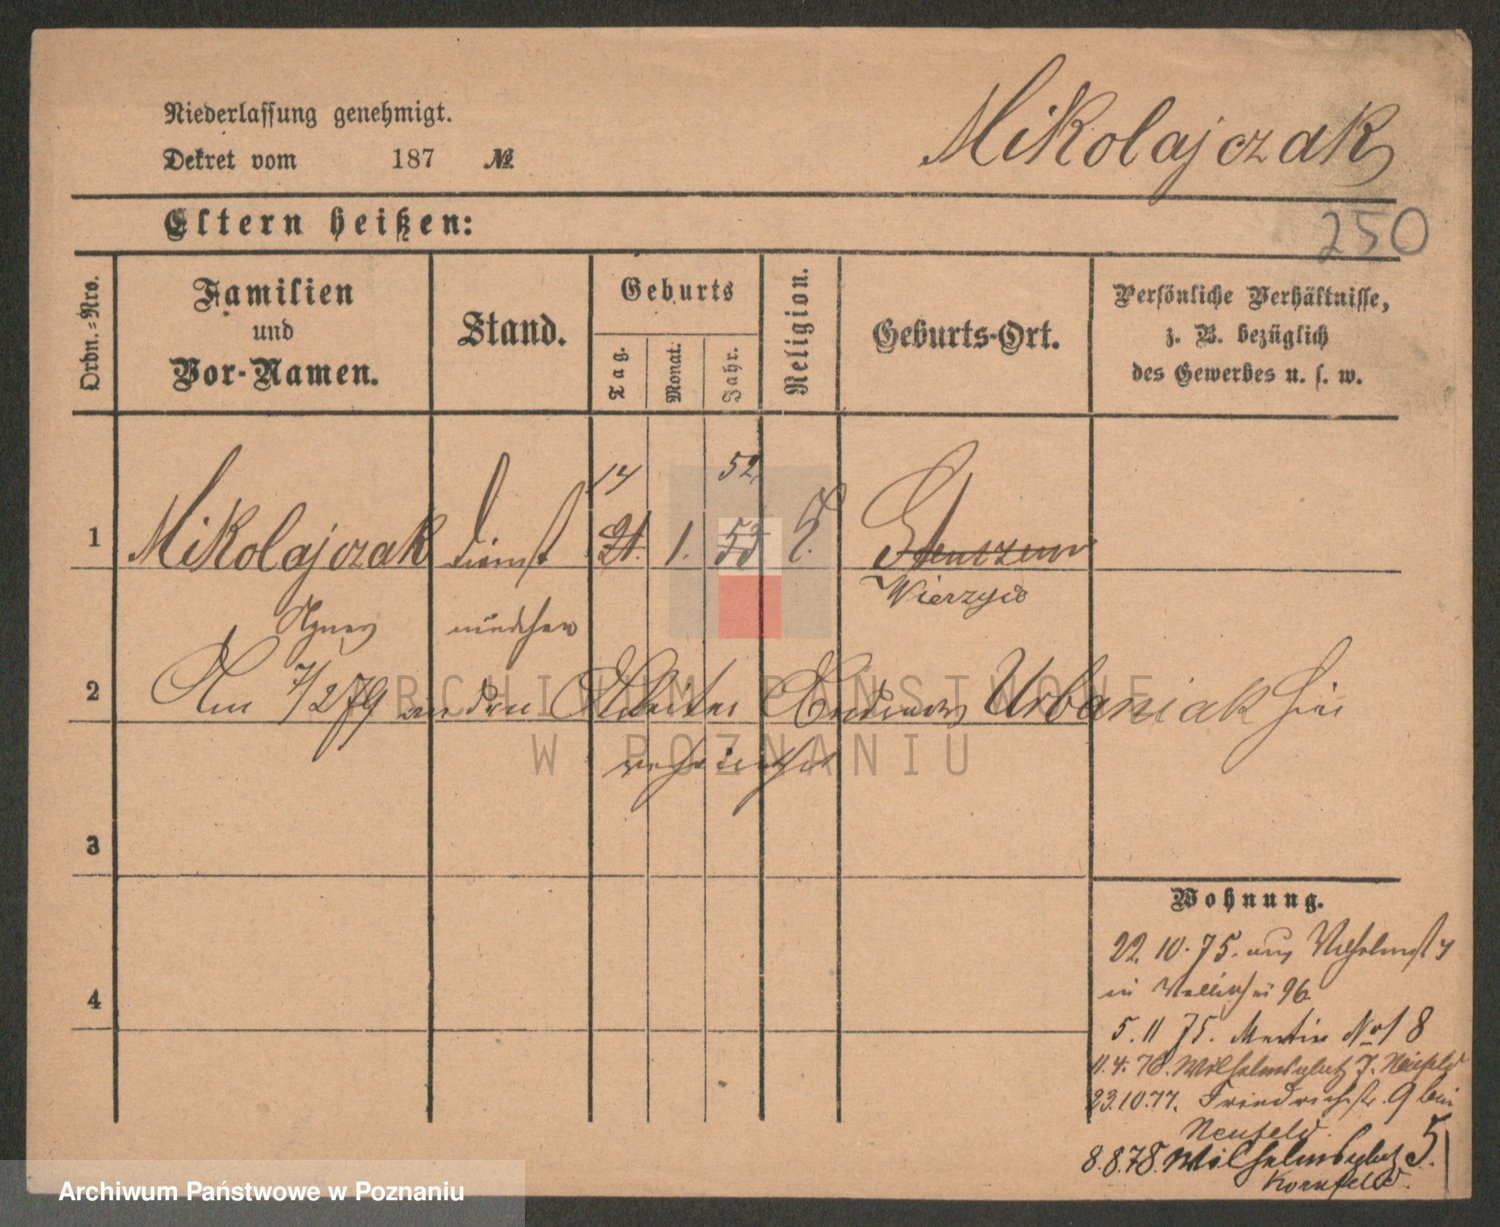 Niederlassung genehmigt.
Dekret vom 187 №
Mikolajczak
250
Eltern heißen:
Ordn.-Nro.
Familien
und
Vor-Namen.
Stand.
Geburts
Tag.
Monat.
Jahr.
Religion.
Geburts-Ort.
Persönliche Verhältnisse,
z. B. bezüglich
des Gewerbes u. s. w.
14 52
1 Mikolajczak Dienst 21. 1. 53 Stenszewo
Agnes mädchen Wierzyce
2 Am 7/2 79 an den Arbeiter Andreas Urbaniak hier
verheirathet
3
4
ARCHIWUM PAŃSTWOWE
W POZNANIU
Wohnung.
22. 10. 75. aus Wilhelmst
in Wallischei 96
5. 11 75. Martin No 18
11. 4. 76. Wilhelmsplatz 7. Neufeld
23. 10. 77. Friedrichstr. 9 bei
Neufeld.
8. 8. 78. Wilhelmsplatz 5.
Kornfeld.
Archiwum Państwowe w Poznaniu